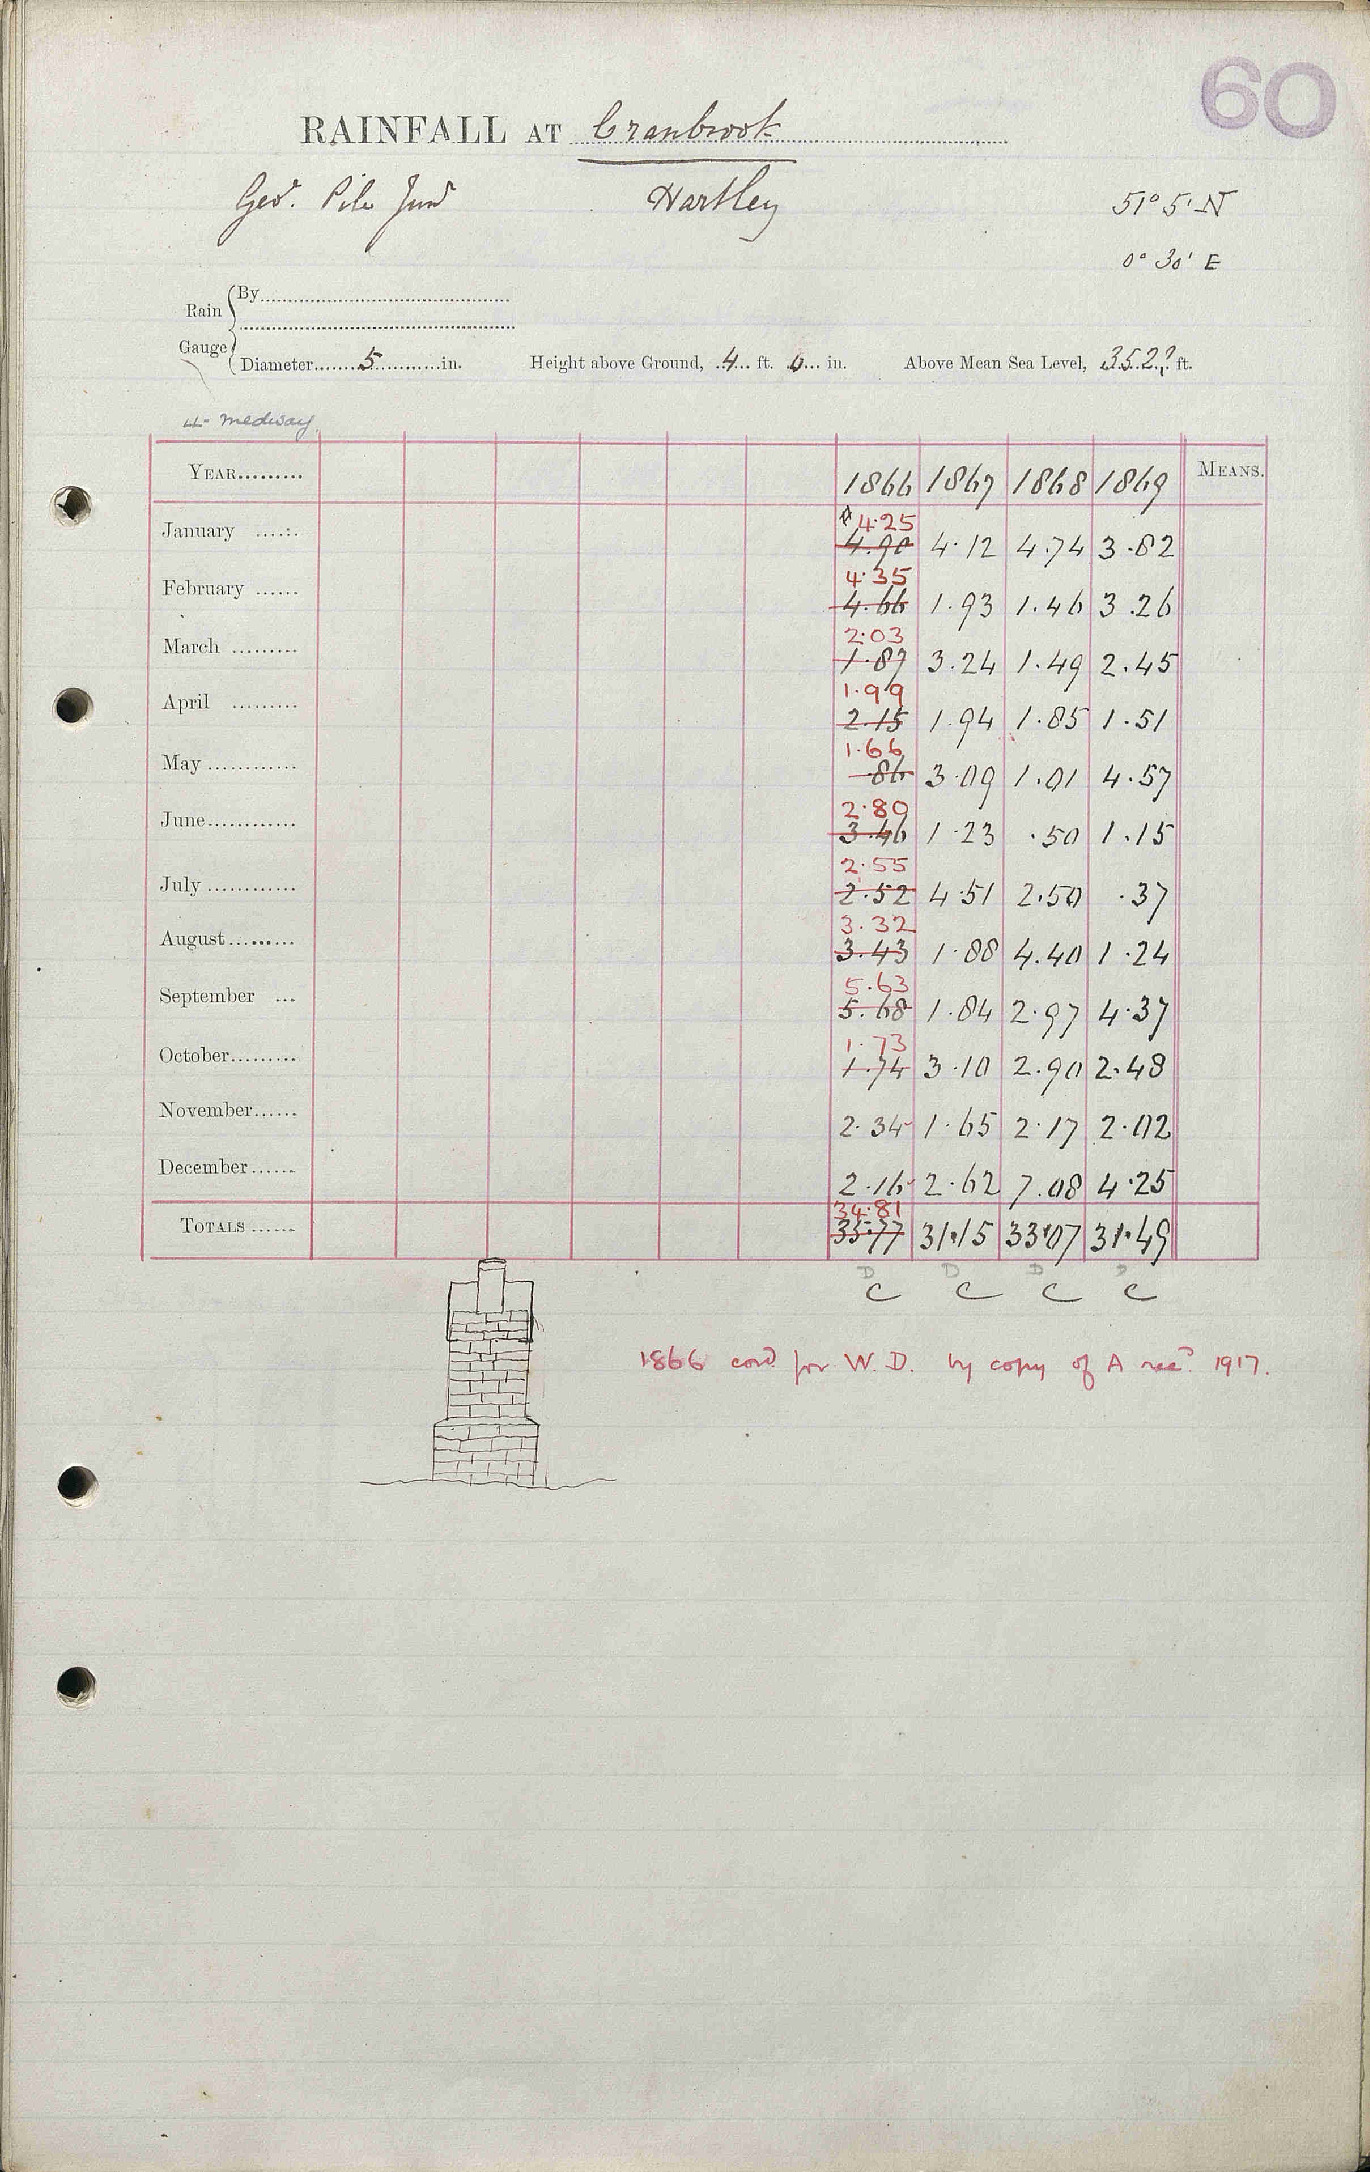 60
RAINFALL AT Cranbrook
Geo. Pile Junr Hartley 51° 5' N
0° 30' E
Rain Gauge { By
Diameter 5 in. Height above Ground, 4 ft. 6 in. Above Mean Sea Level, 352? ft.
Medway
YEAR 1866 1867 1868 1869 MEANS.
4.25
January 4.90 4.12 4.74 3.82
4.35
February 4.66 1.93 1.46 3.26
2.03
March 1.87 3.24 1.49 2.45
1.99
April 2.15 1.94 1.85 1.51
1.66
May .86 3.09 1.01 4.57
2.80
June 3.46 1.23 .50 1.15
2.55
July 2.52 4.51 2.50 .37
3.32
August 3.43 1.88 4.40 1.24
5.63
September 5.68 1.84 2.97 4.37
1.73
October 1.74 3.10 2.90 2.48
November 2.34 1.65 2.17 2.02
December 2.16 2.62 7.08 4.25
34.81
TOTALS 35.77 31.15 33.07 31.49
D D D D
C C C C
1866 cord for W.D. by copy of A recd. 1917.